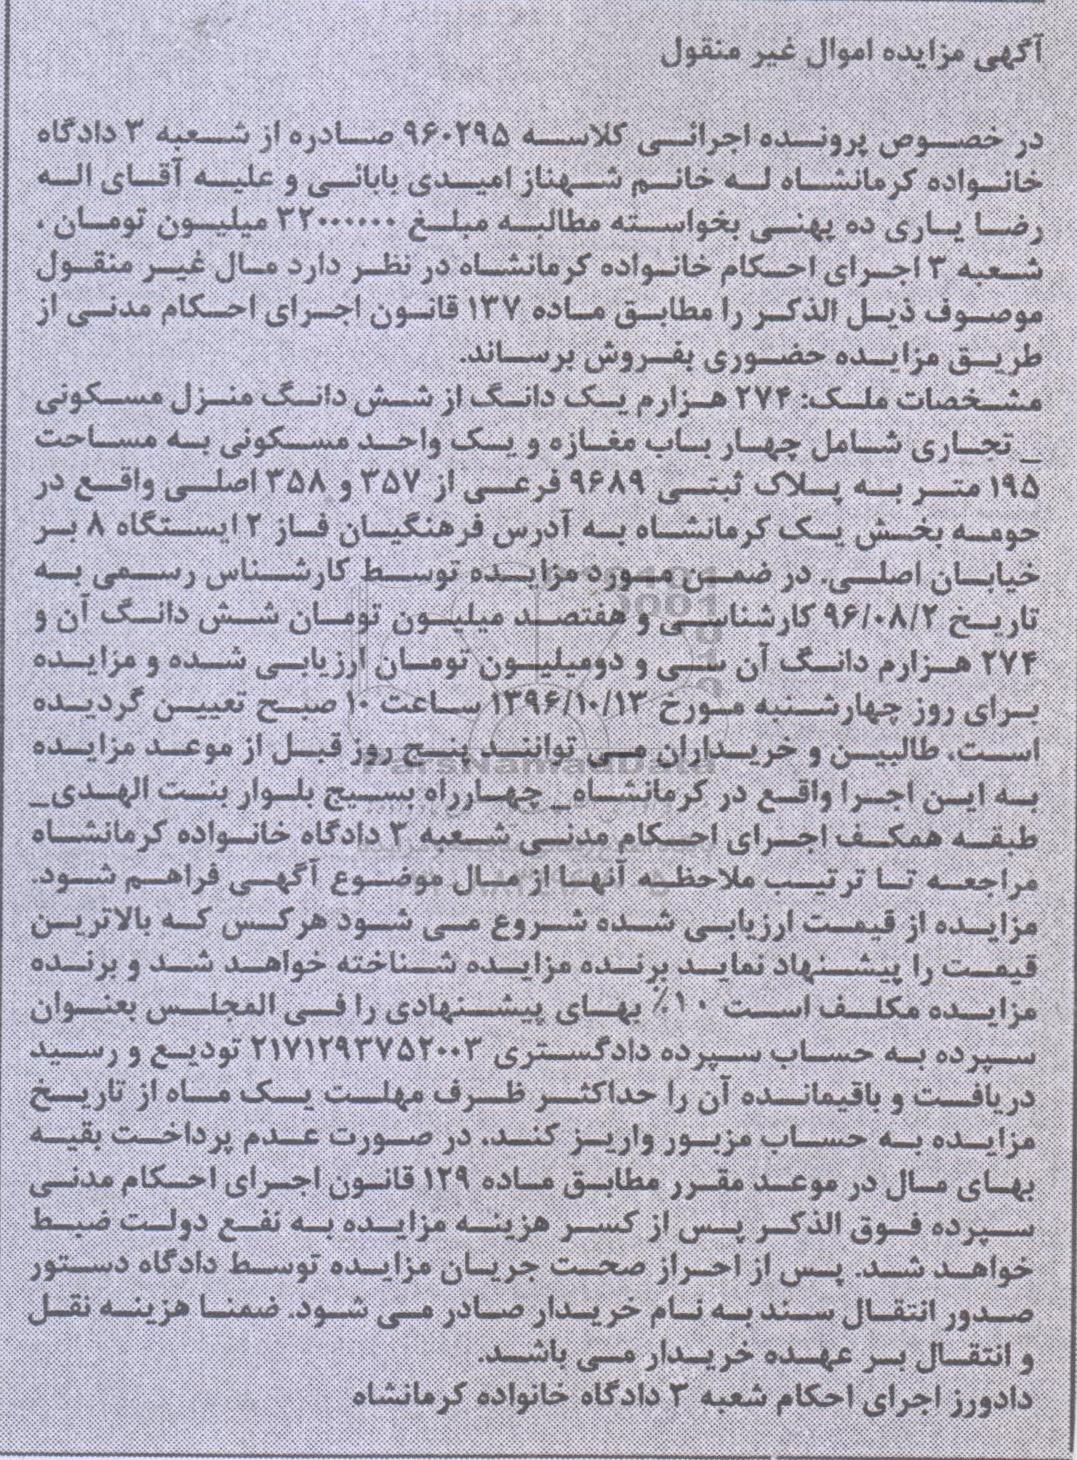 آگهی مزایده اموال غیر منقول
در خصوص پرونده اجرائی کلاسه ۹۶۰۲۹۵ صادره از شعبه ۳ دادگاه
خانواده کرمانشاه له خانم شهناز امیدی بابائی و علیه آقای اله
رضا یاری ده پهنی بخواسته مطالبه مبلغ ۳۲۰۰۰۰۰۰ میلیون تومان ،
شعبه ۳ اجرای احکام خانواده کرمانشاه در نظر دارد مال غیر منقول
موصوف ذیل الذکر را مطابق ماده ۱۳۷ قانون اجرای احکام مدنی از
طریق مزایده حضوری بفروش برساند.
مشخصات ملک: ۲۷۴ هزارم یک دانگ از شش دانگ منزل مسکونی
_ تجاری شامل چهار باب مغازه و یک واحد مسکونی به مساحت
۱۹۵ متر به پلاک ثبتی ۹۶۸۹ فرعی از ۳۵۷ و ۳۵۸ اصلی واقع در
حومه بخش یک کرمانشاه به آدرس فرهنگیان فاز ۲ ایستگاه ۸ بر
خیابان اصلی. در ضمن مورد مزایده توسط کارشناس رسمی به
تاریخ ۹۶/۰۸/۲ کارشناسی و هفتصد میلیون تومان شش دانگ آن و
۲۷۴ هزارم دانگ آن سی و دومیلیون تومان ارزیابی شده و مزایده
برای روز چهارشنبه مورخ ۱۳۹۶/۱۰/۱۳ ساعت ۱۰ صبح تعیین گردیده
است، طالبین و خریداران می توانند پنج روز قبل از موعد مزایده
به این اجرا واقع در کرمانشاه_ چهارراه بسیج بلوار بنت الهدی_
طبقه همکف اجرای احکام مدنی شعبه ۳ دادگاه خانواده کرمانشاه
مراجعه تا ترتیب ملاحظه آنها از مال موضوع آگهی فراهم شود.
مزایده از قیمت ارزیابی شده شروع می شود هرکس که بالاترین
قیمت را پیشنهاد نماید برنده مزایده شناخته خواهد شد و برنده
مزایده مکلف است ۱۰٪ بهای پیشنهادی را فی المجلس بعنوان
سپرده به حساب سپرده دادگستری ۲۱۷۱۲۹۳۷۵۲۰۰۳ تودیع و رسید
دریافت و باقیمانده آن را حداکثر ظرف مهلت یک ماه از تاریخ
مزایده به حساب مزبور واریز کند، در صورت عدم پرداخت بقیه
بهای مال در موعد مقرر مطابق ماده ۱۲۹ قانون اجرای احکام مدنی
سپرده فوق الذکر پس از کسر هزینه مزایده به نفع دولت ضبط
خواهد شد. پس از احراز صحت جریان مزایده توسط دادگاه دستور
صدور انتقال سند به نام خریدار صادر می شود. ضمنا هزینه نقل
و انتقال بر عهده خریدار می باشد.
دادورز اجرای احکام شعبه ۳ دادگاه خانواده کرمانشاه
ParsNamadData